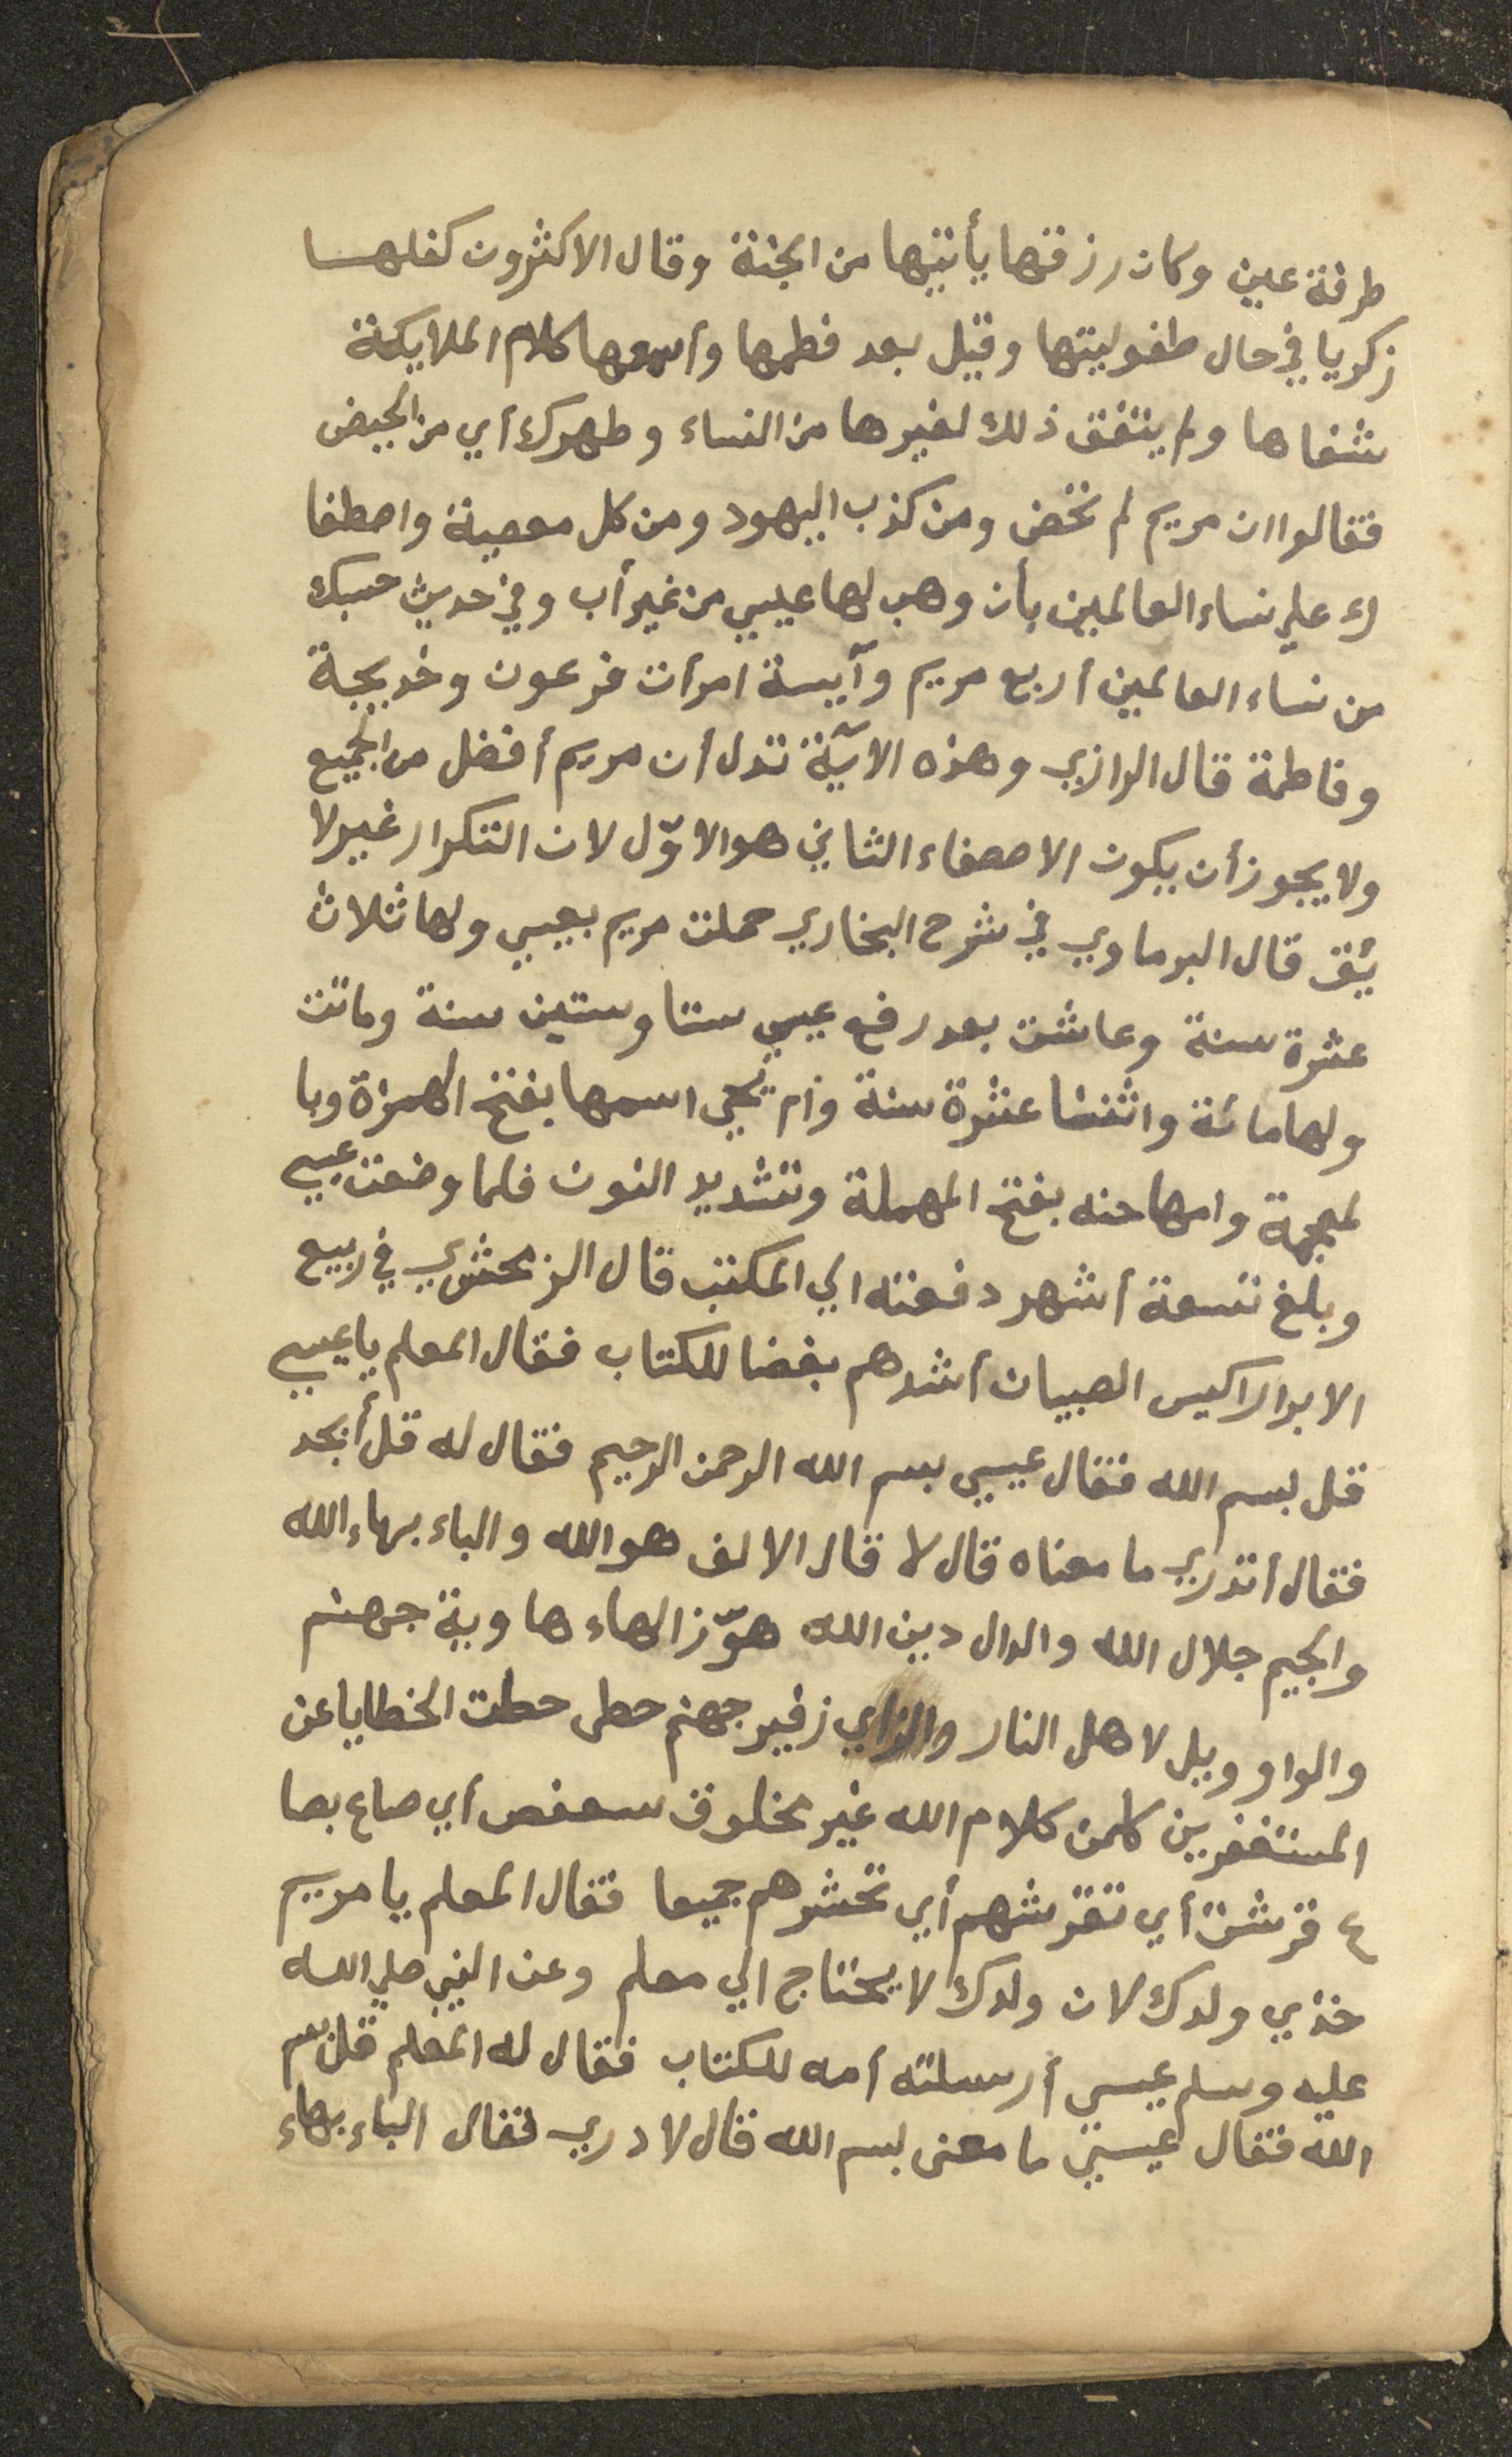 طرفة عين وكان رزقها يأتيها من الجنة وقال الاكثرون كفلها
زكريا في حال طفوليتها وقيل بعد فطمها وأسمعها كلام الملايكة
شفاها ولم يتفق ذلك لغيرها من النساء وطهرك أي من الحيض
فقالوا ان مريم لم تحض ومن كذب اليهود ومن كل معصية واصطفا
ك علي نساء العالمين بأن وهب لها عيسي من غير أب وفي حديث حسبك
من نساء العالمين أربع مريم وآيسة امرأت فرعون وخديجة
وفاطمة قال الرازي وهذه الآية تدل أن مريم أفضل من الجميع
ولا يجوز أن يكون الاصصفاء الثاني هو الاوّل لان التكرار غير لا
يئق قال البرماوي في شرح البخاري حملت مريم بعيسي ولها ثلاث
عشرة سنة وعاشت بعد رفع عيسي ستا وستين سنة وماتت
ولها مائة واثنتا عشرة سنة وأم يحيي اسمها بفتح الهمزة وبا
لمعجمة وامها حنه بفتح المهملة وتشديد النون فلما وضعت عيسي
وبلغ تسعة أشهر دفعته الي المكتب قال الزمخشري في ربيع
الابرار اكيس الصبيان أشدهم بغضا للكتاب فقال المعلم يا عيسي
قل بسم الله فقال عيسي بسم الله الرحمن الرحيم فقال له قل أبجد
فقال أتدري ما معناه قال لا قال الالف هو الله والباء بهاء الله
والجيم جلال الله والدال دين الله هوّز الهاء هاوية جهنم
والواو ويل لاهل النار والزاي زفير جهنم حطي حطت الخطايا عن
المستغفرين كلمن كلام الله غير مخلوق سعفص أي صاع بصا
ع قرشت أي تقرشهم أي تحشرهم جميعا فقال المعلم يا مريم
خذي ولدك لان ولدك لا يحتاج الي معلم وعن النبي صلي الله
عليه وسلم عيسي أرسلته أمه للكتاب فقال له المعلم قل بسم
الله فقال عيسي ما معنى بسم الله قال لا دري فقال الباء بهاء